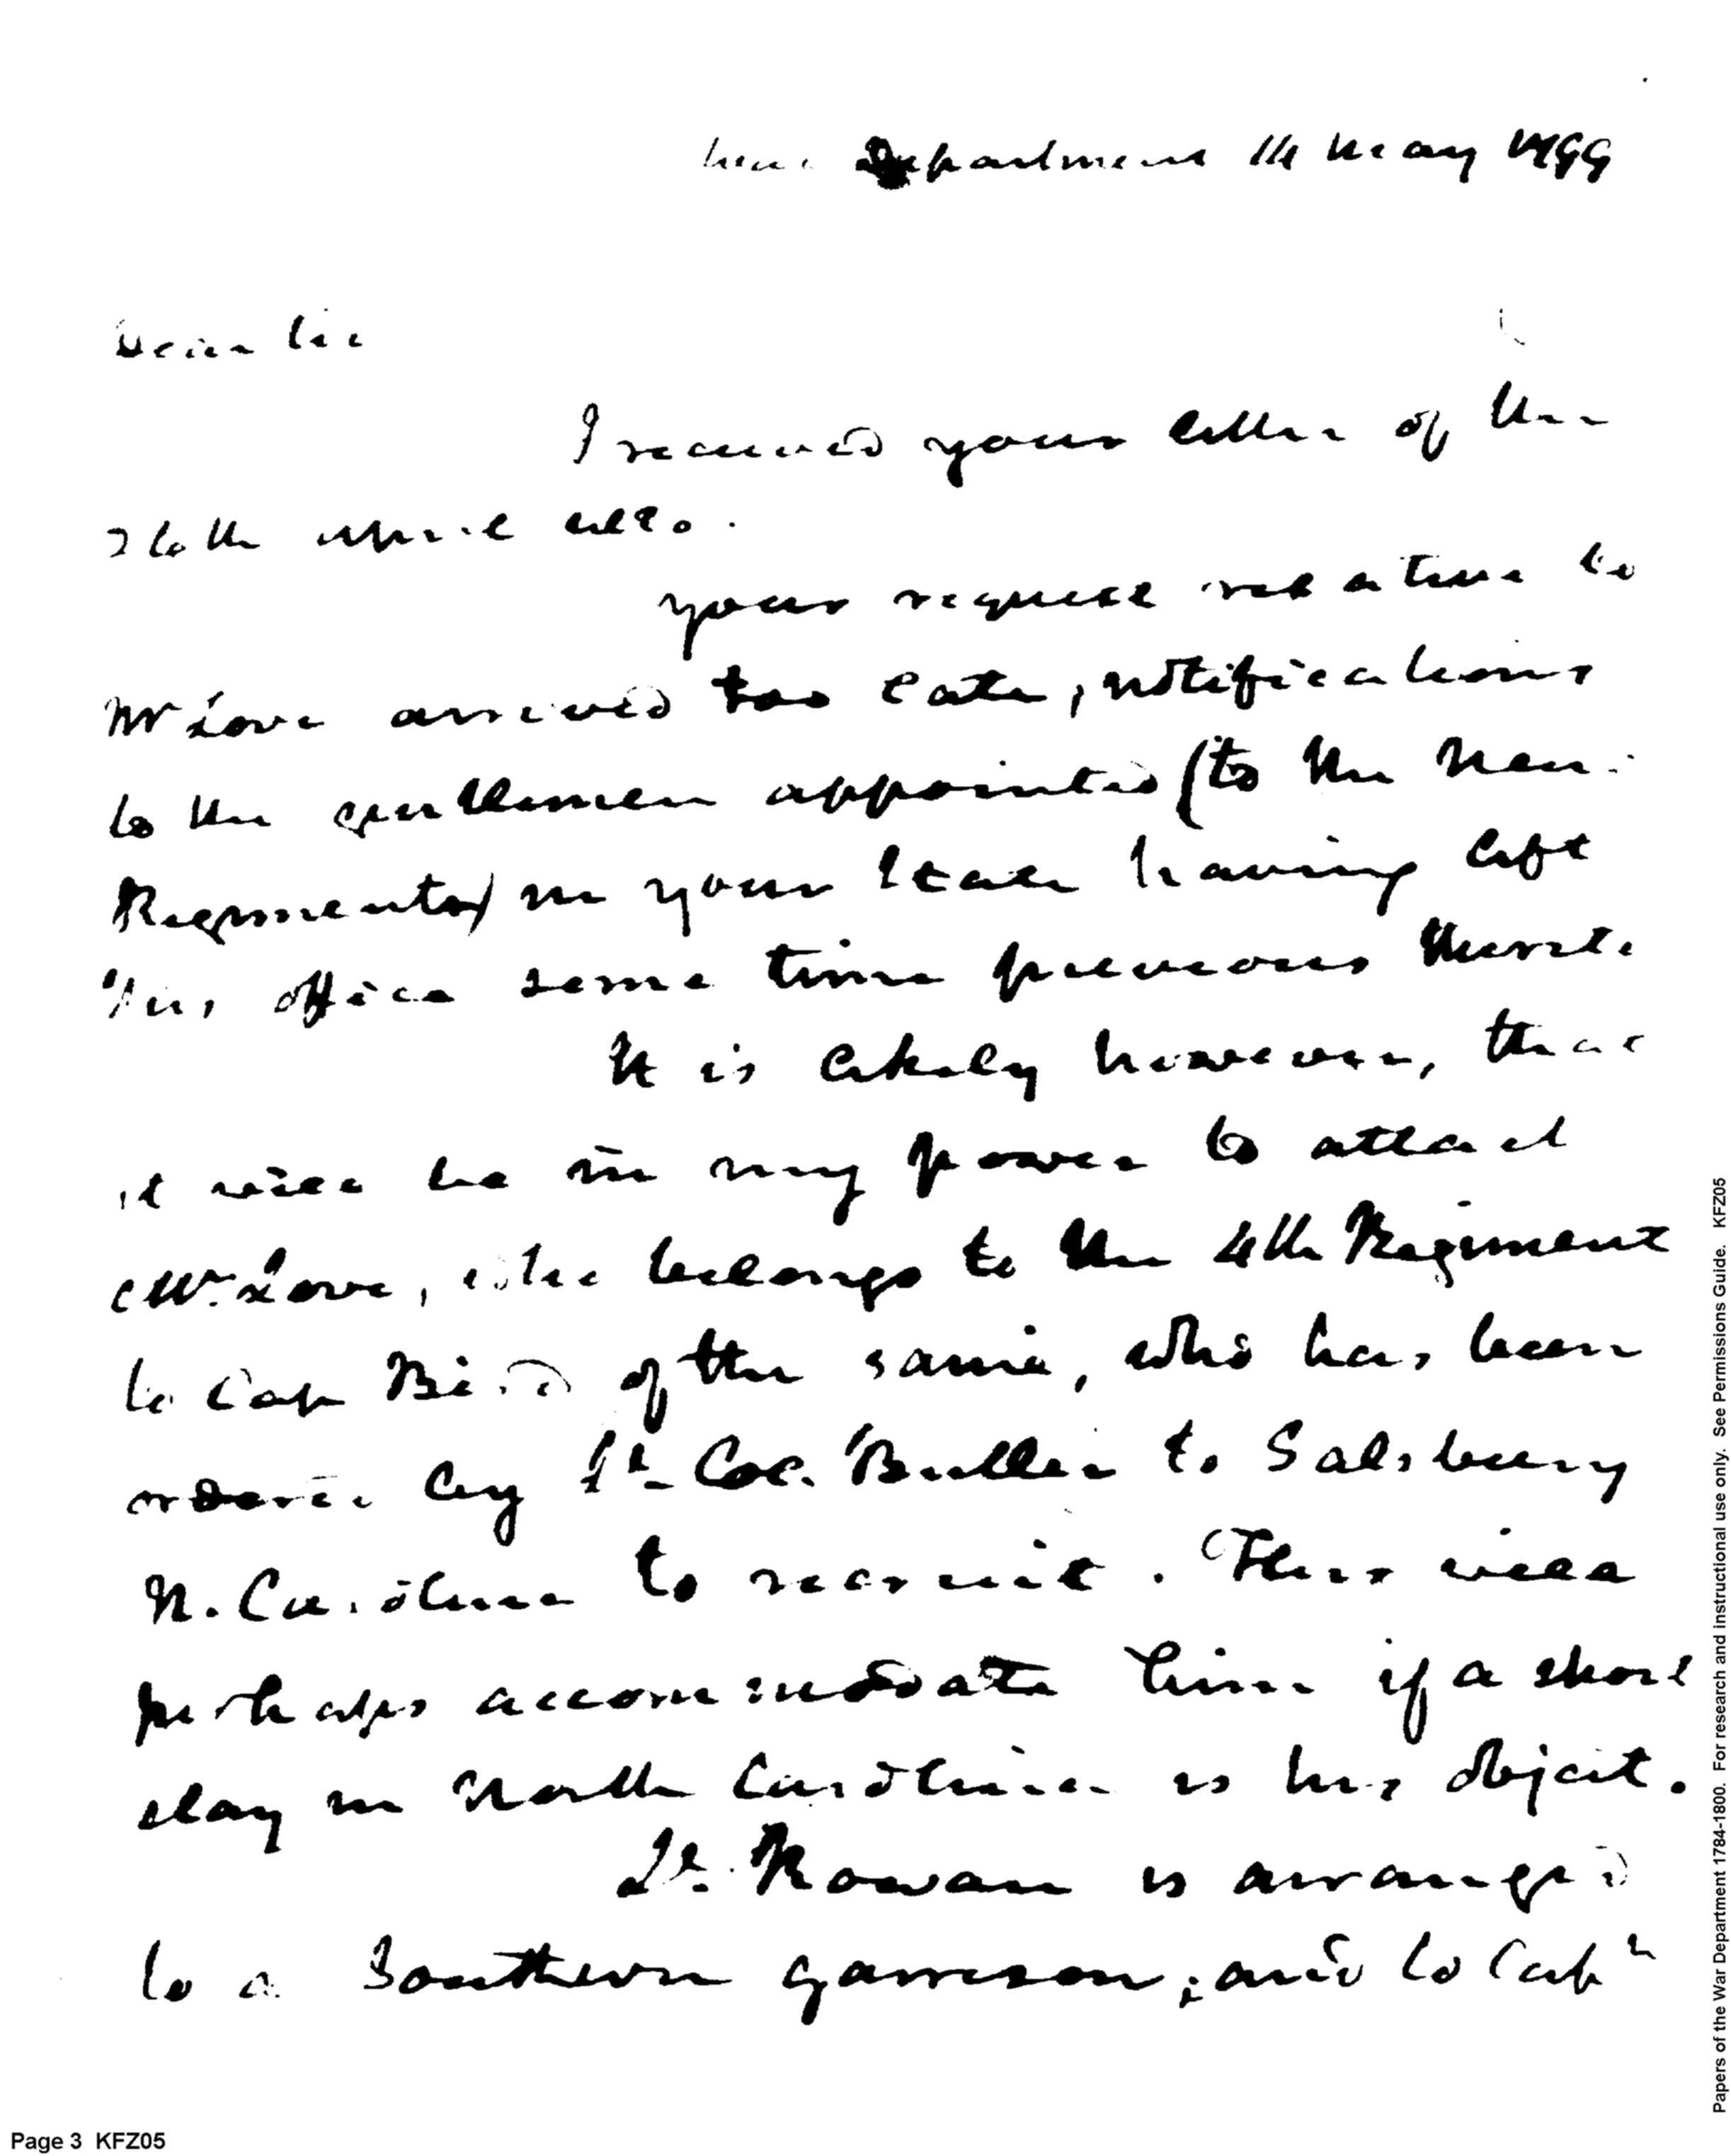 War Department 14 May 1799
Dear Sir
I received your letter of the
26th April ulto.
your request relative to
Mr Love arrived too late, notifications
to the gentlemen appointed (to the new
Regiments) in your State having left
this office some time previous thereto
It is likely however, that
it will be in my power to attach
Mr. Love, who belongs to the 4th Regiment
to Cap Bird of the same, who has been
ordered by Lt Col. Butler to Salsbury
N. Carolina to recruit. This will
perhaps accommodate him if a short
stay in North Carolina is his object.
Lt. Rowan is arranged
to a Southern garrison; and to Capn
Page 3 KFZ05
Papers of the War Department 1784-1800. For research and instructional use only. See Permissions Guide. KFZ05